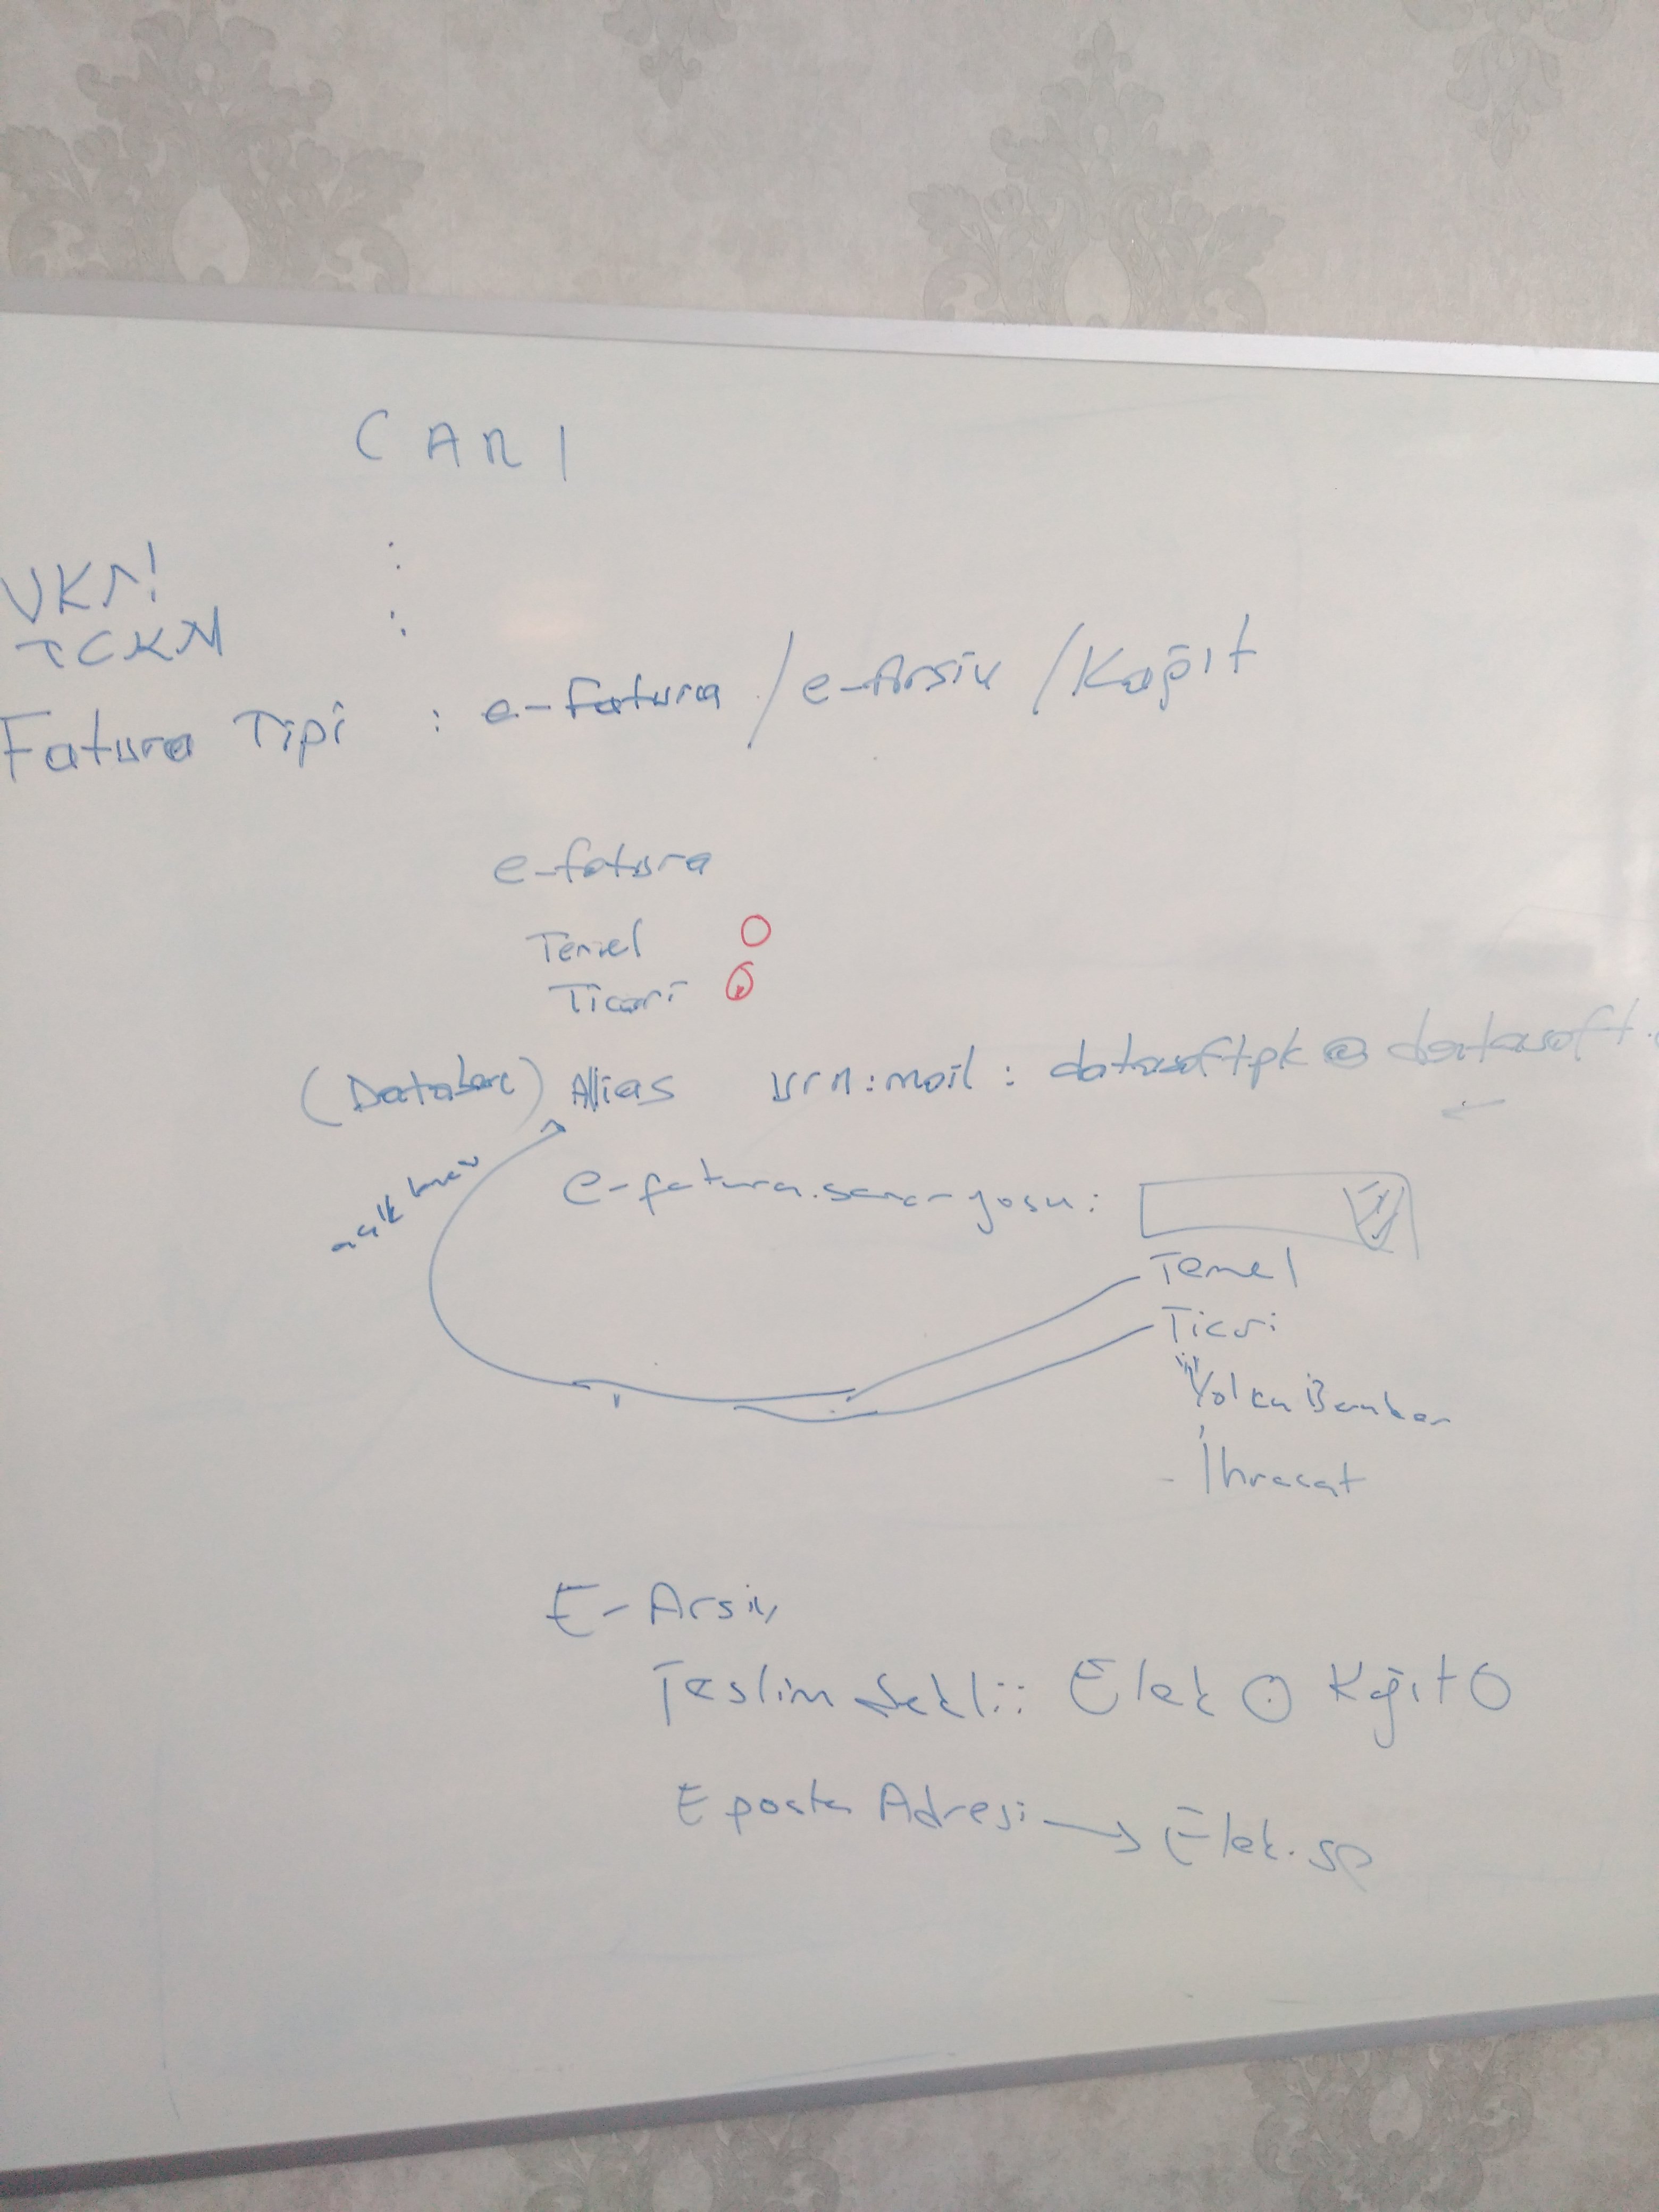 CARI
VKN :
TCKN :
Fatura Tipi : e-fatura / e-Arsiv / Kağıt
e-fatura
Temel
Ticari
(Database) Alias urn:mail : datasoftpk@datasoft.
e-fatura senaryosu :
Temel
Ticari
Yolcu Beraber
İhracat
E-Arsiv
Teslim Sekli : Elek Kağıt
E posta Adresi → Elek. se